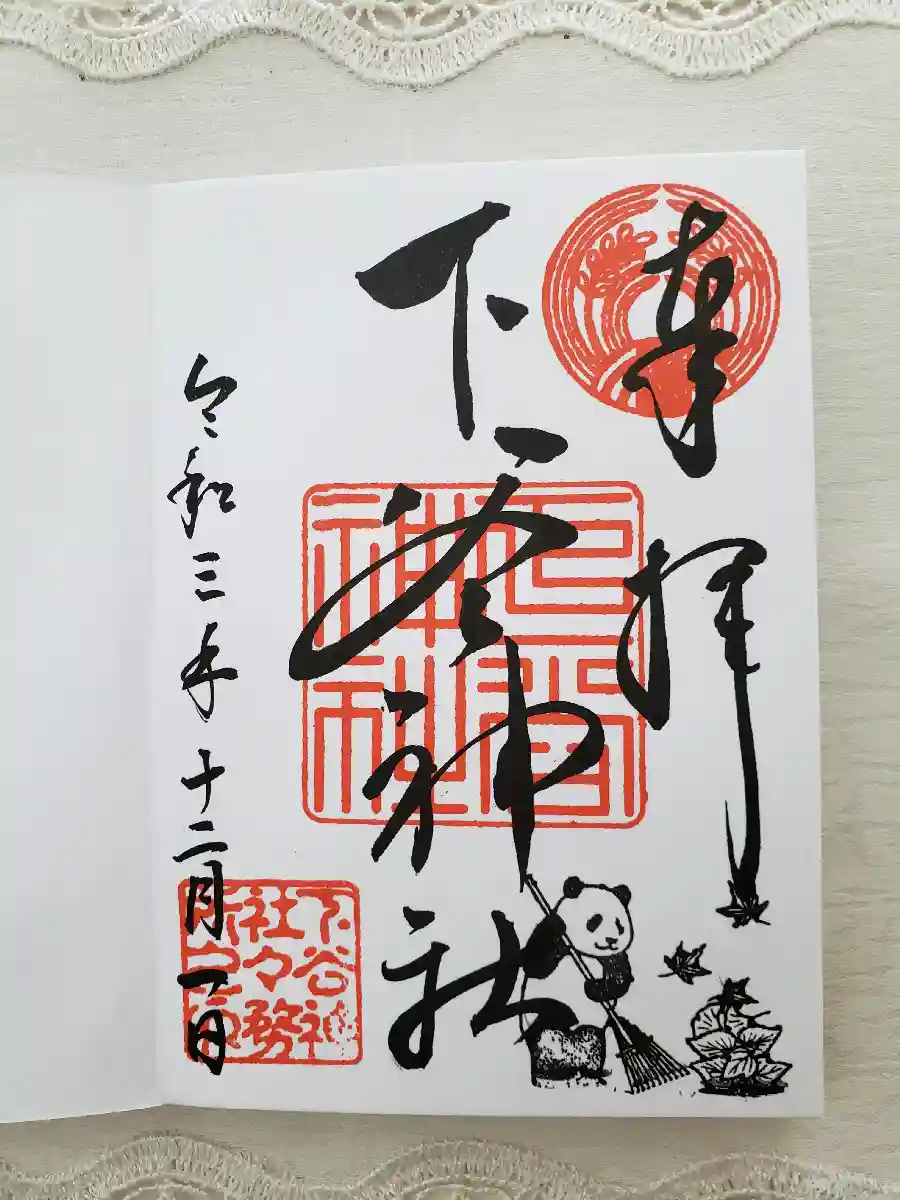 奉拝
下谷神社
下谷神社
下谷神社々務所之印
令和三年十二月一日